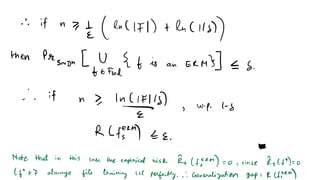 ∴ if n ≥ 1/ε ( ln(|F|) + ln(1/δ) )
then Pr_{S~D^n} [ ∪_{f∈F_bad} { f is an ERM } ] ≤ δ.
∴ if n ≥ ln(|F|/δ)/ε , w.p. 1-δ
R(f_S^{ERM}) ≤ ε.
Note that in this case the empirical risk R̂_S(f_S^{ERM}) = 0, since R̂_S(f*) = 0
(f* ∈ F always fits training set perfectly. ∴ Generalization gap: R(f_S^{ERM})